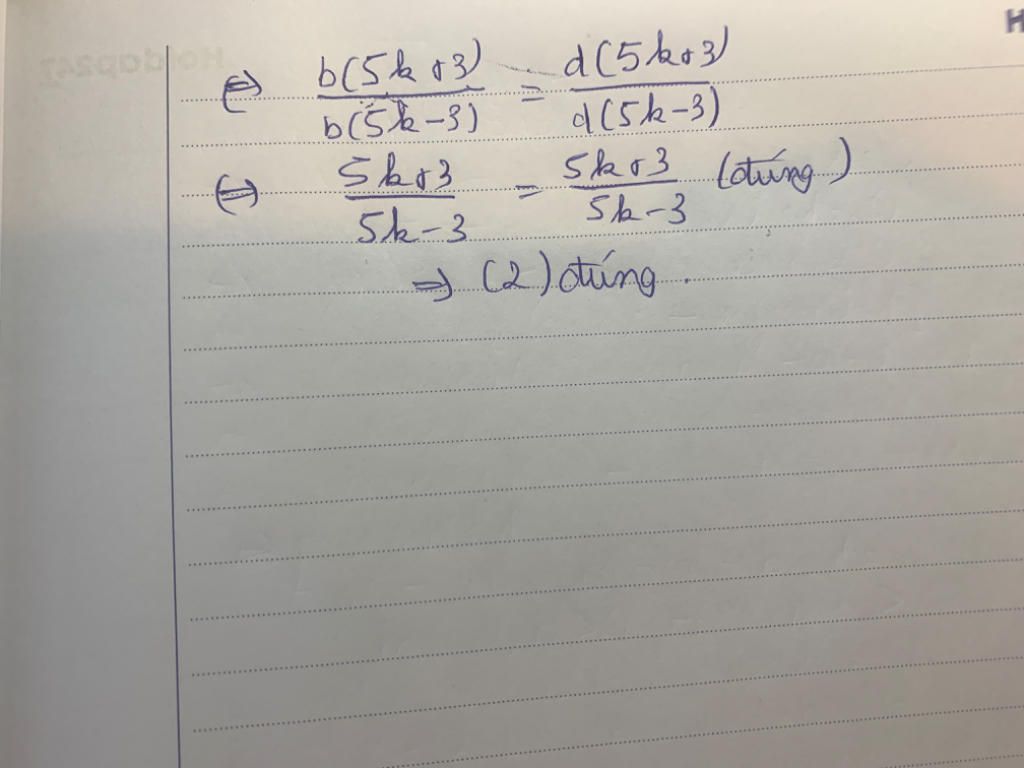 H
⇔ b(5k+3)/b(5k-3) = d(5k+3)/d(5k-3)
⇔ 5k+3/5k-3 = 5k+3/5k-3 (đúng)
⇒ (2) đúng.